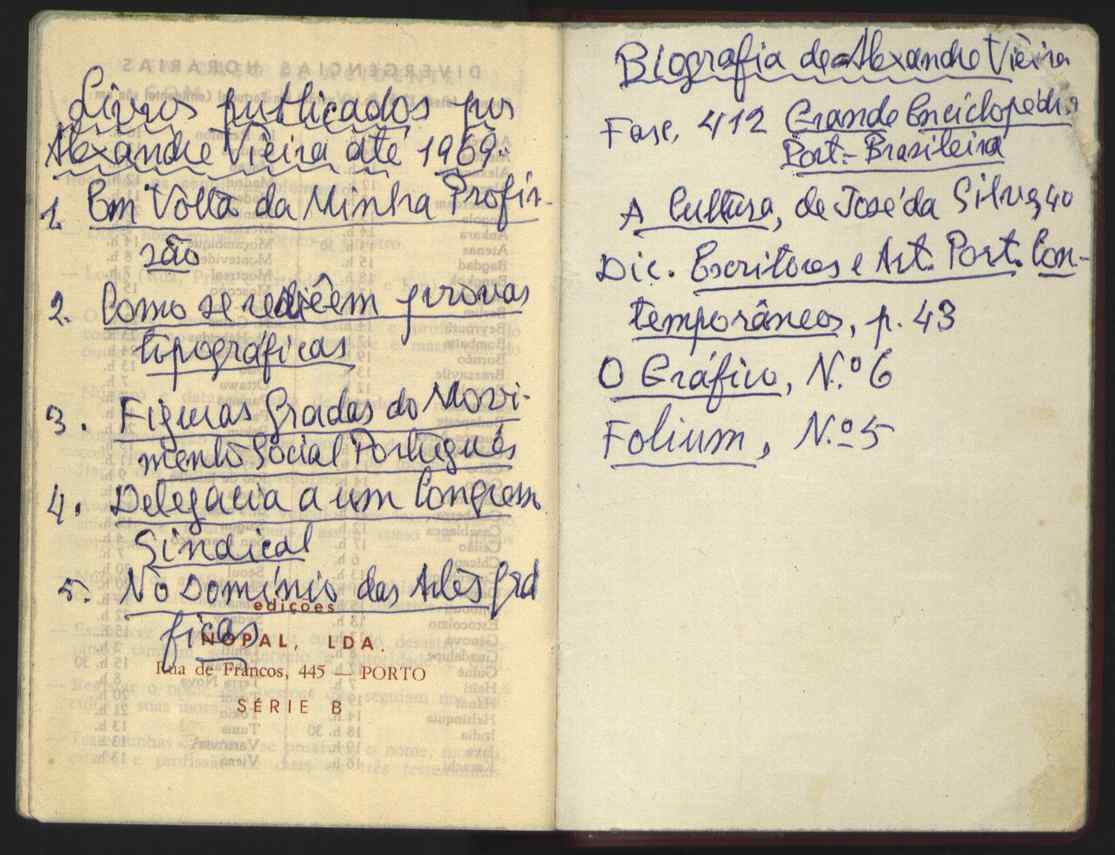 Livros publicados por
Alexandre Vieira até 1969:
1. Em Volta da Minha Profis-
são
2. Como se redigem provas
tipográficas
3. Figuras Gradas do Movi-
mento Social Português
4. Delegacia a um Congresso
Sindical
5. No Domínio das Artes Grá
ficas
edições
NOPAL, LDA.
Rua de Francos, 445 — PORTO
SÉRIE B
Biografia de Alexandre Vieira
Fasc. 412 Grande Enciclopédia
Port-Brasileira
A Cultura, de José da Silva, 40
Dic. Escritores e Art. Port. Con-
temporâneos, p. 43
O Gráfico, N.º 6
Folium, N.º 5